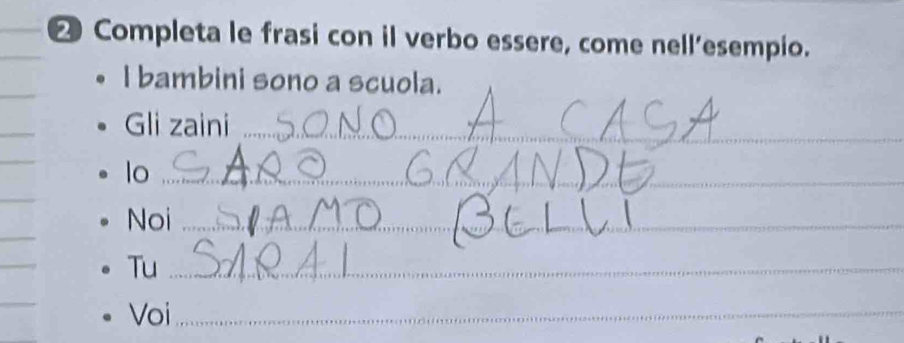 2 Completa le frasi con il verbo essere, come nell'esempio.
• I bambini sono a scuola.
• Gli zaini SONO A CASA
• Io SARO GRANDE
• Noi SIAMO BELLI
• Tu SARAI
• Voi